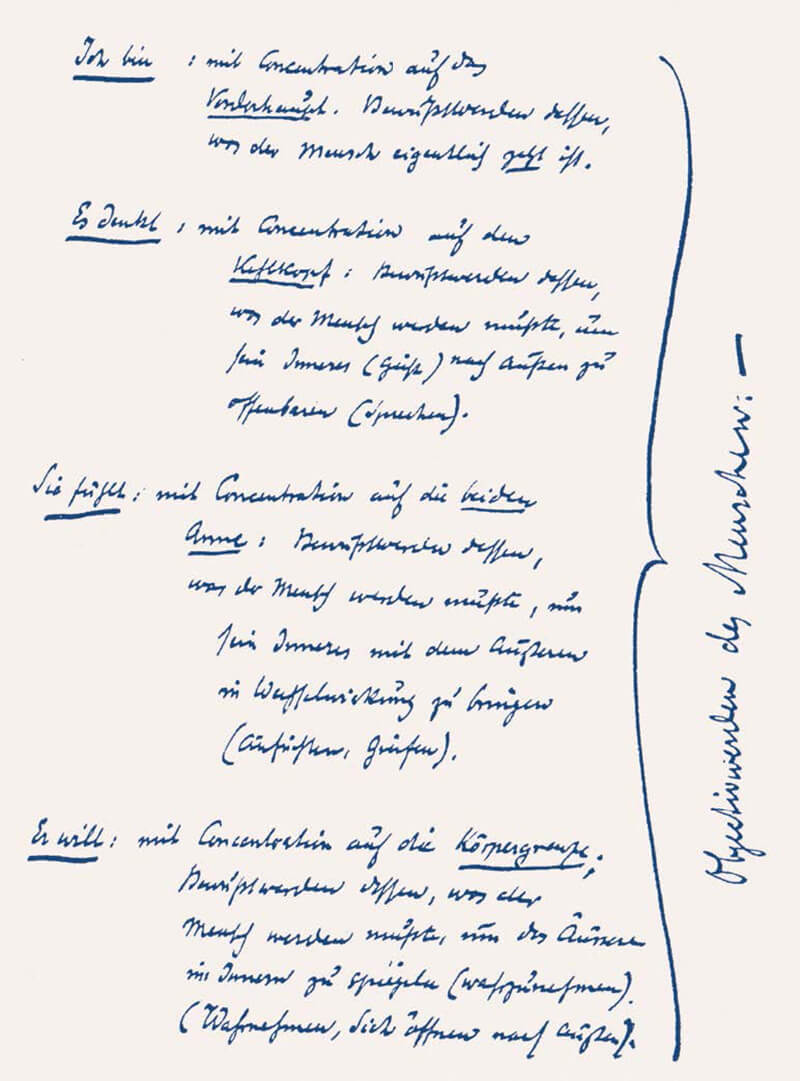 Ich bin : mit Concentration auf das
Vorderhaupt. Bewußtwerden dessen,
was der Mensch eigentlich jetzt ist.
Es denkt : mit Concentration auf den
Kehlkopf : Bewußtwerden dessen,
was der Mensch werden müßte, um
sein Inneres (Geist) nach Außen zu
offenbaren (Sprechen).
Sie fühlt : mit Concentration auf die beiden
Arme : Bewußtwerden dessen,
was der Mensch werden müßte, um
sein Inneres mit dem Äußeren
in Wechselwirkung zu bringen
(Greifen).
Er will : mit Concentration auf die Körpergrenze;
Bewußtwerden dessen, was der
Mensch werden müßte, um das Äussere
im Innern zu spiegeln (wahrzunehmen).
(Wahrnehmen, Sich öffnen nach Außen).
Objectivwerden des Menschen: —